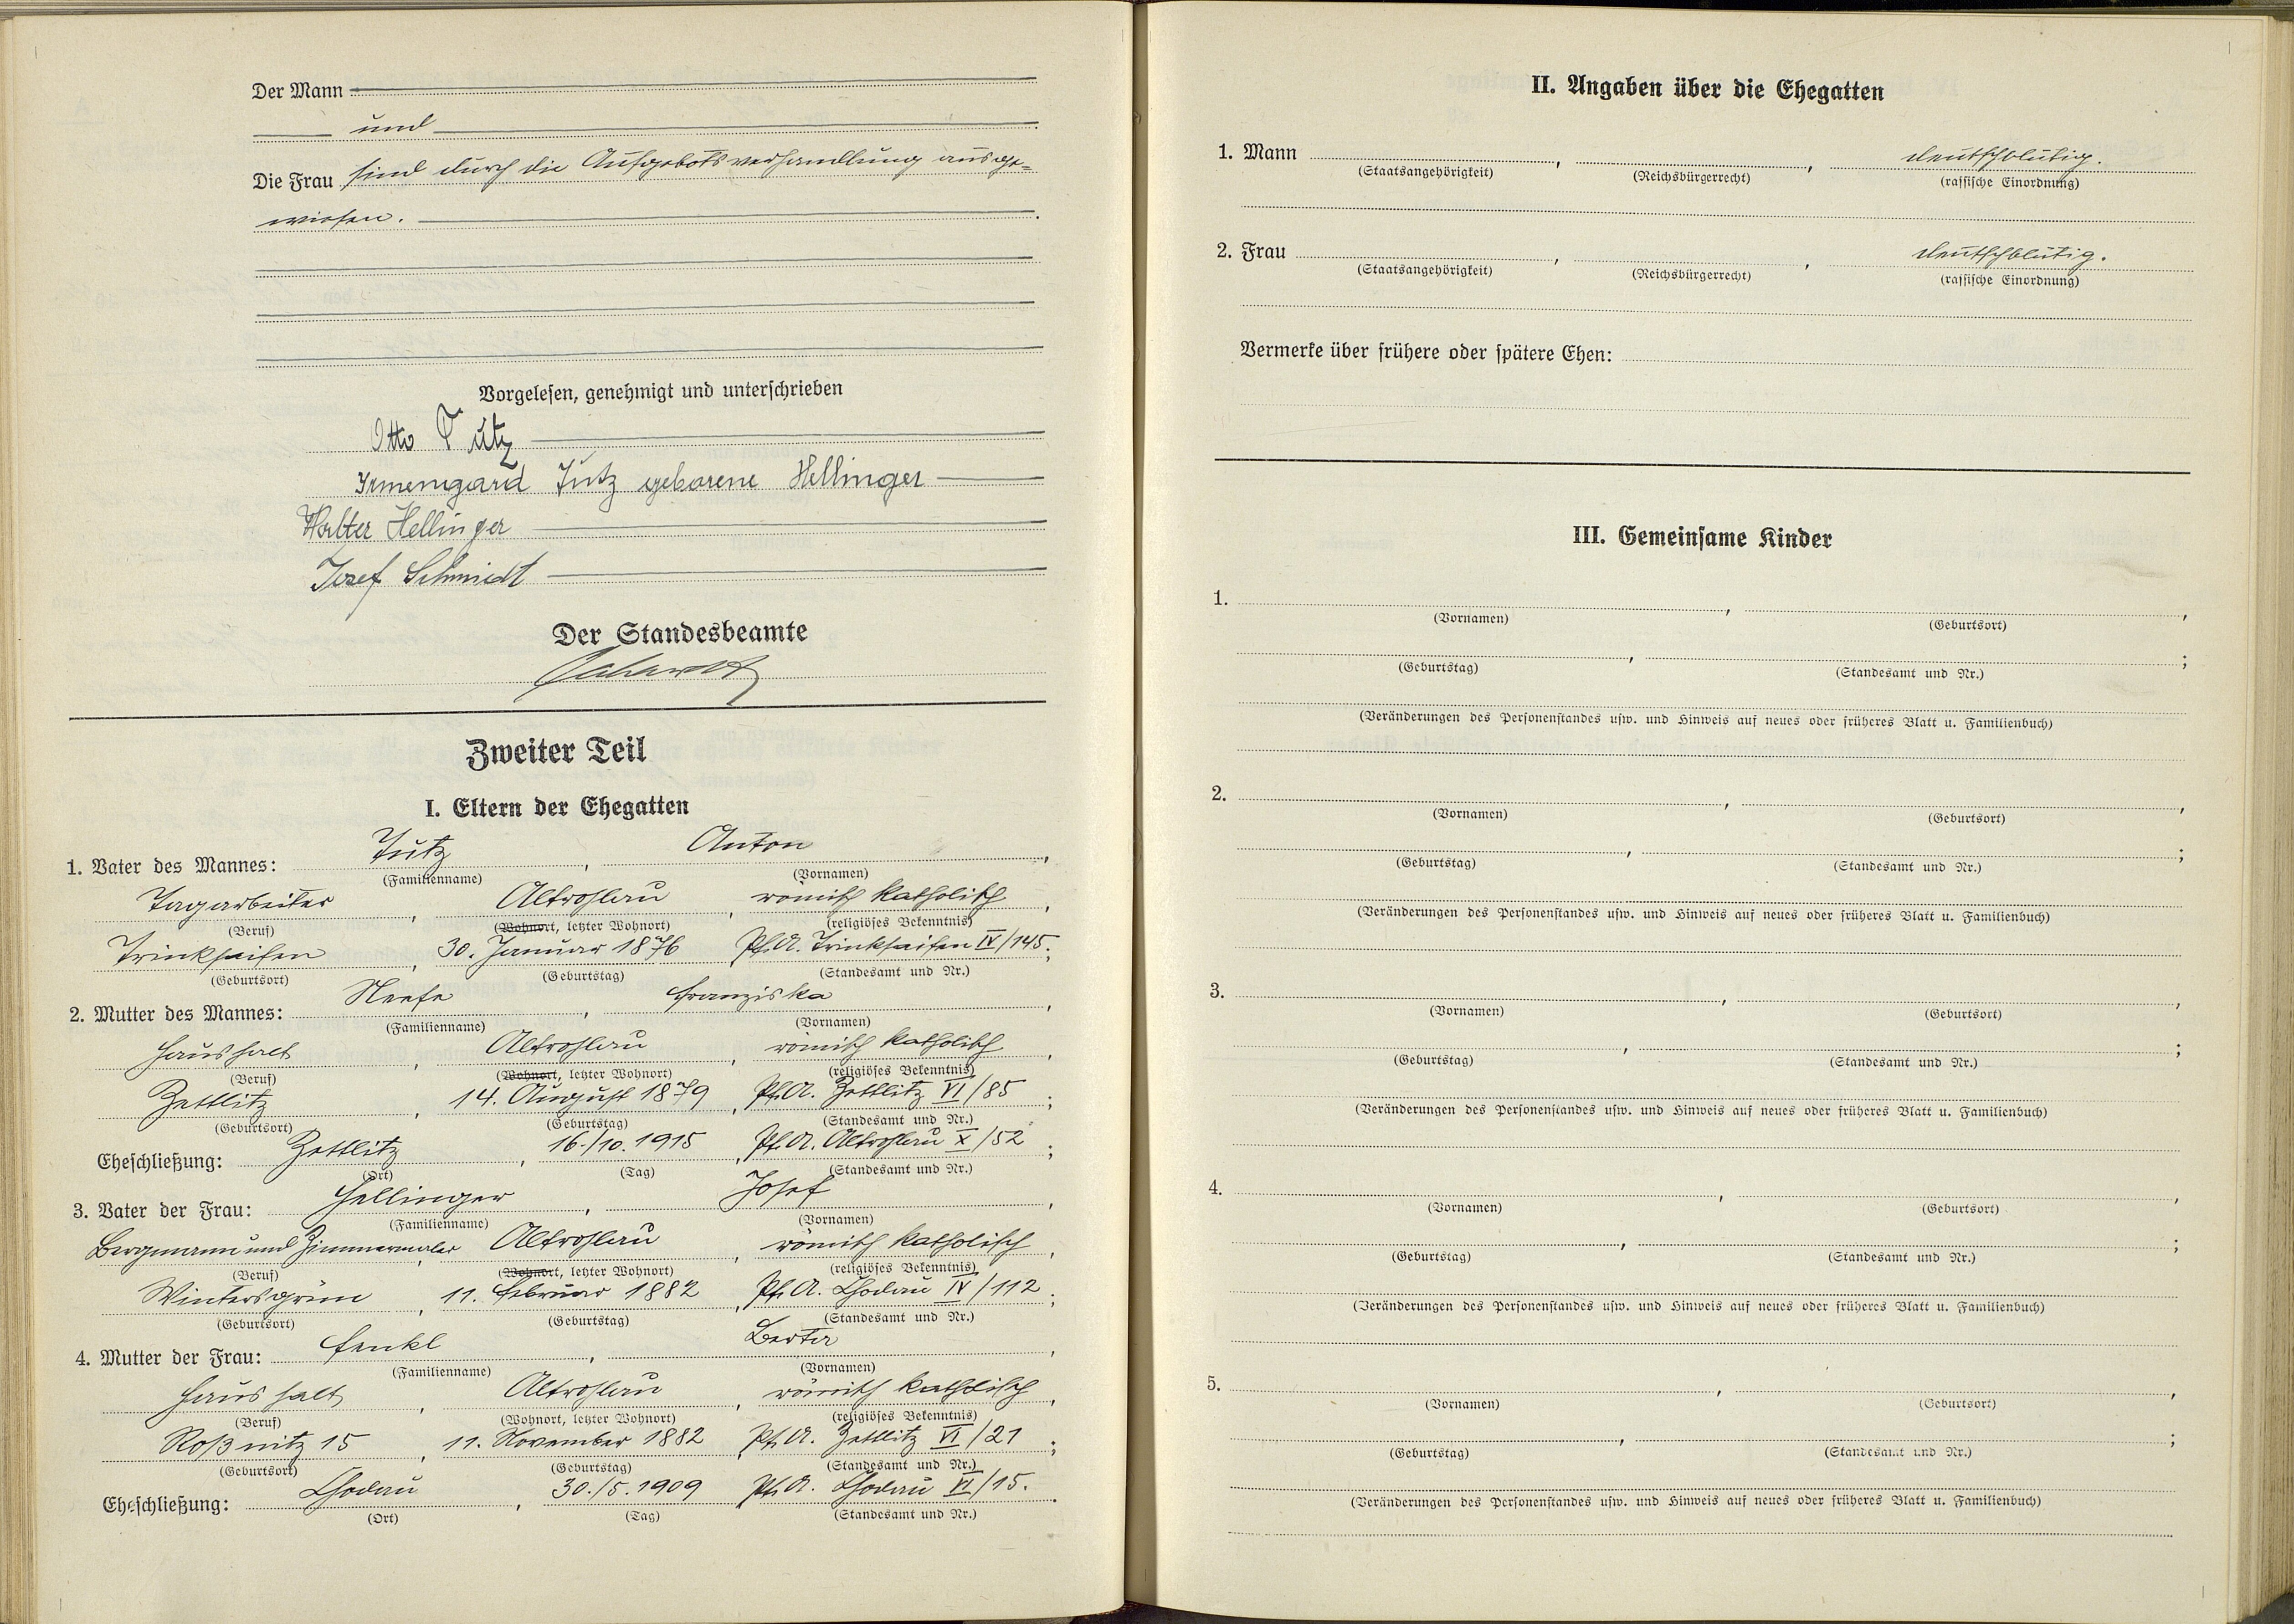 Der Mann
und
Die Frau sind durch die Aufgebotsverhandlung ausge-
wiesen.
Vorgelesen, genehmigt und unterschrieben
Otto Tutz
Irmengard Tutz geborene Hellinger
Walter Hellinger
Josef Schmidt
Der Standesbeamte
Zweiter Teil
I. Eltern der Ehegatten
1. Vater des Mannes: Tutz, Anton,
(Familienname) (Vornamen)
Tagarbeiter, Altrohlau, römisch katholisch,
(Beruf) (Wohnort, letzter Wohnort) (religiöses Bekenntnis)
Trinkseifen, 30. Januar 1876 Pf. A. Trinkseifen IV/145;
(Geburtsort) (Geburtstag) (Standesamt und Nr.)
2. Mutter des Mannes: Neefe, Franziska,
(Familienname) (Vornamen)
Haushalt, Altrohlau, römisch katholisch,
(Beruf) (Wohnort, letzter Wohnort) (religiöses Bekenntnis)
Zettlitz, 14. August 1879, Pf. A. Zettlitz VI/85;
(Geburtsort) (Geburtstag) (Standesamt und Nr.)
Eheschließung: Zettlitz, 16./10. 1915, Pf. A. Altrohlau X/52;
(Ort) (Tag) (Standesamt und Nr.)
3. Vater der Frau: Hellinger, Josef,
(Familienname) (Vornamen)
Bergmann und Zimmermaler, Altrohlau, römisch katholisch,
(Beruf) (Wohnort, letzter Wohnort) (religiöses Bekenntnis)
Wintersgrün, 11. Februar 1882, Pf. A. Chodau IV/112;
(Geburtsort) (Geburtstag) (Standesamt und Nr.)
4. Mutter der Frau: Fenkl, Berta,
(Familienname) (Vornamen)
Haushalt, Altrohlau, römisch katholisch,
(Beruf) (Wohnort, letzter Wohnort) (religiöses Bekenntnis)
Roßnitz 15, 11. November 1882, Pf. A. Zettlitz VI/21;
(Geburtsort) (Geburtstag) (Standesamt und Nr.)
Eheschließung: Chodau, 30./5. 1909 Pf. A. Chodau VI/15.
(Ort) (Tag) (Standesamt und Nr.)
II. Angaben über die Ehegatten
1. Mann , , deutschblütig.
(Staatsangehörigkeit) (Reichsbürgerrecht) (rassische Einordnung)
2. Frau , , deutschblütig.
(Staatsangehörigkeit) (Reichsbürgerrecht) (rassische Einordnung)
Vermerke über frühere oder spätere Ehen:
III. Gemeinsame Kinder
1. , ,
(Vornamen) (Geburtsort)
, ;
(Geburtstag) (Standesamt und Nr.)
(Veränderungen des Personenstandes usw. und Hinweis auf neues oder früheres Blatt u. Familienbuch)
2. , ,
(Vornamen) (Geburtsort)
, ;
(Geburtstag) (Standesamt und Nr.)
(Veränderungen des Personenstandes usw. und Hinweis auf neues oder früheres Blatt u. Familienbuch)
3. , ,
(Vornamen) (Geburtsort)
, ;
(Geburtstag) (Standesamt und Nr.)
(Veränderungen des Personenstandes usw. und Hinweis auf neues oder früheres Blatt u. Familienbuch)
4. , ,
(Vornamen) (Geburtsort)
, ;
(Geburtstag) (Standesamt und Nr.)
(Veränderungen des Personenstandes usw. und Hinweis auf neues oder früheres Blatt u. Familienbuch)
5. , ,
(Vornamen) (Geburtsort)
, ;
(Geburtstag) (Standesamt und Nr.)
(Veränderungen des Personenstandes usw. und Hinweis auf neues oder früheres Blatt u. Familienbuch)